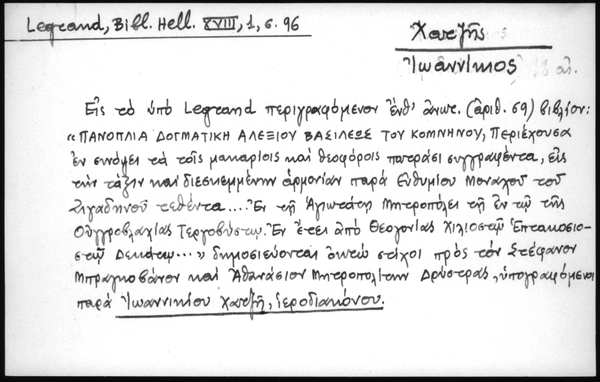 Legrand, Bibl. Hell. XVIII, 1, σ. 96
Χατζῆς
Ἰωαννίκιος
Εἰς τὸ ὑπὸ Legrand περιγραφόμενον ἔνθ' ἀνωτ. (ἀριθ. 69) βιβλίον:
"ΠΑΝΟΠΛΙΑ ΔΟΓΜΑΤΙΚΗ ΑΛΕΞΙΟΥ ΒΑΣΙΛΕΩΣ ΤΟΥ ΚΟΜΝΗΝΟΥ, Περιέχουσα
ἐν συνόψει τὰ τοῖς μακαρίοις καὶ θεοφόροις πατράσι συγγραφέντα, εἰς
τὴν τάξιν καὶ διεσκεμμένην ἁρμονίαν παρὰ Εὐθυμίου Μοναχοῦ τοῦ
Ζιγαδηνοῦ τεθέντα.... Ἐν τῇ Ἁγιωτάτῃ Μητροπόλει τῇ ἐν τῷ τῆς
Οὑγγροβλαχίας Τεργοβύστῳ. Ἐν ἔτει ἀπὸ Θεογονίας Χιλιοστῷ Ἑπτακοσιο-
στῷ Δεκάτῳ..." δημοσιεύονται ὀκτὼ στίχοι πρὸς τὸν Στέφανον
Μπραγκοβάνον καὶ Ἀθανάσιον Μητροπολίτην Δρύστρας, ὑπογραφόμενοι
παρὰ Ἰωαννικίου Χατζῆ, ἱεροδιακόνου.